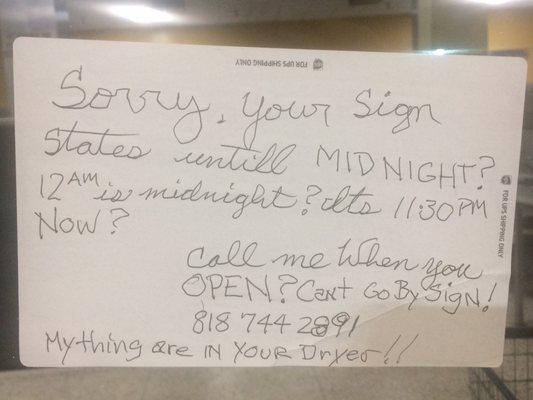 FOR UPS SHIPPING ONLY
Sorry, your sign
states untill MIDNIGHT?
12AM is midnight? Its 11:30 PM
Now?
call me when you
OPEN? Cant Go By Sign!
818 744 2891
My thing are IN YOUR Dryer!!
FOR UPS SHIPPING ONLY